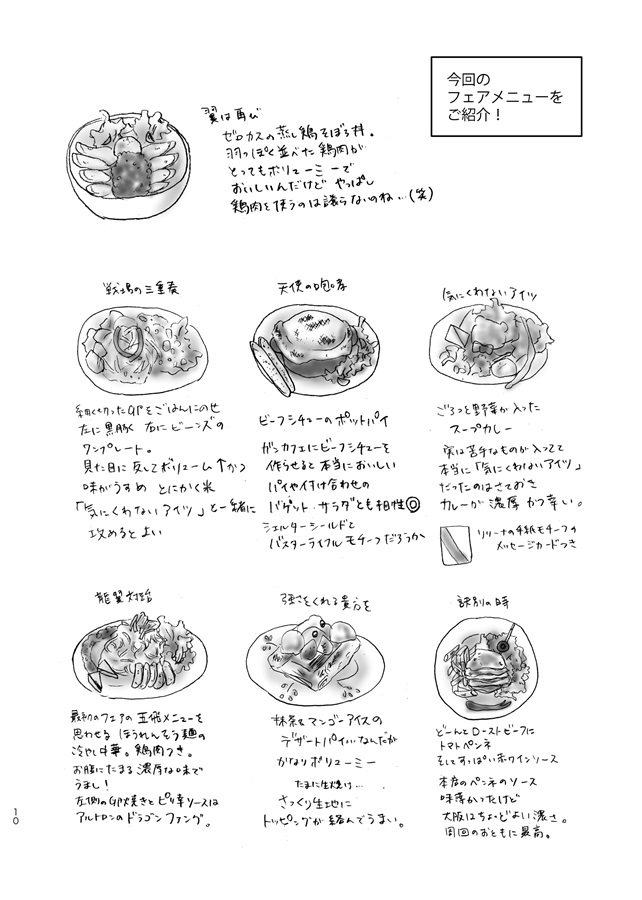 今回の
フェアメニューを
ご紹介！
翼は再び
ゼロカスの蒸し鶏そぼろ丼。
羽っぽく並べた鶏肉が
とってもボリューミーで
おいしいんだけど やっぱし
鶏肉を使うのは譲らないのね…(笑)
戦場の三重奏
細く切ったGPをごはんにのせ
左に黒豚 右にビーンズの
ワンプレート。
見た目に反してボリューム↑かつ
味がうすめ とにかく米
「気にくわないアイツ」と一緒に
攻めるとよい
天使の咆哮
ビーフシチューのポットパイ
ガンカフェにビーフシチューを
作らせると本当においしい
パイや付け合わせの
バゲット、サラダとも相性◎
シェルターシールドと
バスターライフルモチーフだろうか
気にくわないアイツ
ごろっと野菜が入った
スープカレー
実は苦手なものが入ってて
本当に「気にくわないアイツ」
だったのはさておき
カレーが濃厚かつ辛い。
リリーナの手紙モチーフの
メッセージカードつき
龍翼対話
最初のフェアの五飛メニューを
思わせる ほうれんそう麺の
冷やし中華。鶏肉つき。
お腹にたまる濃厚な味で
うまし！
左側の卵焼きとピリ辛ソースは
アルトロンのドラゴンファング。
強さをくれる貴方を
抹茶とマンゴーアイスの
デザートパイ…なんだが
かなりボリューミー
たまに生焼け…
さっくり生地に
トッピングが絡んでうまい。
訣別の時
どーんとローストビーフに
トマトペンネ
そしてすっぱいホワインソース
本店のペンネのソース
味薄かったけど
大阪はちょうどよい濃さ。
周回のおともに最高。
10